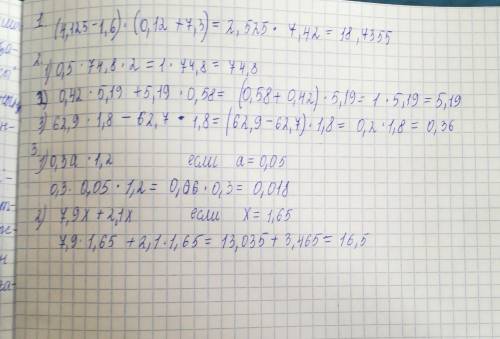 1.
(4,125-1,6)·(0,12+7,3)=2,525·7,42=18,7355
2.
1) 0,5·74,8·2=1·74,8=74,8
2) 0,42·5,19+5,19·0,58=(0,58+0,42)·5,19=1·5,19=5,19
3) 62,9·1,8-62,7·1,8=(62,9-62,7)·1,8=0,2·1,8=0,36
3.
1) 0,3a·1,2 если a=0,05
0,3·0,05·1,2=0,06·0,3=0,018
2) 7,9x+2,1x если x=1,65
7,9·1,65+2,1·1,65=13,035+3,465=16,5